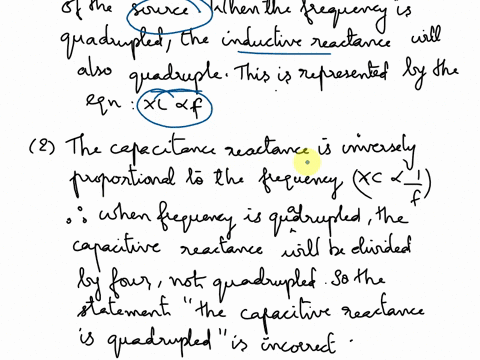 of the source. When the frequency is
quadrupled, the inductive reactance will
also quadruple. This is represented by the
eqn: XL ∝ f
(2) The capacitance reactance is inversely
proportional to the frequency (XC ∝ 1/f)
∴ when frequency is quadrupled, the
capacitive reactance will be divided
by four, not quadrupled. So the
statement "the capacitive reactance
is quadrupled" is incorrect.